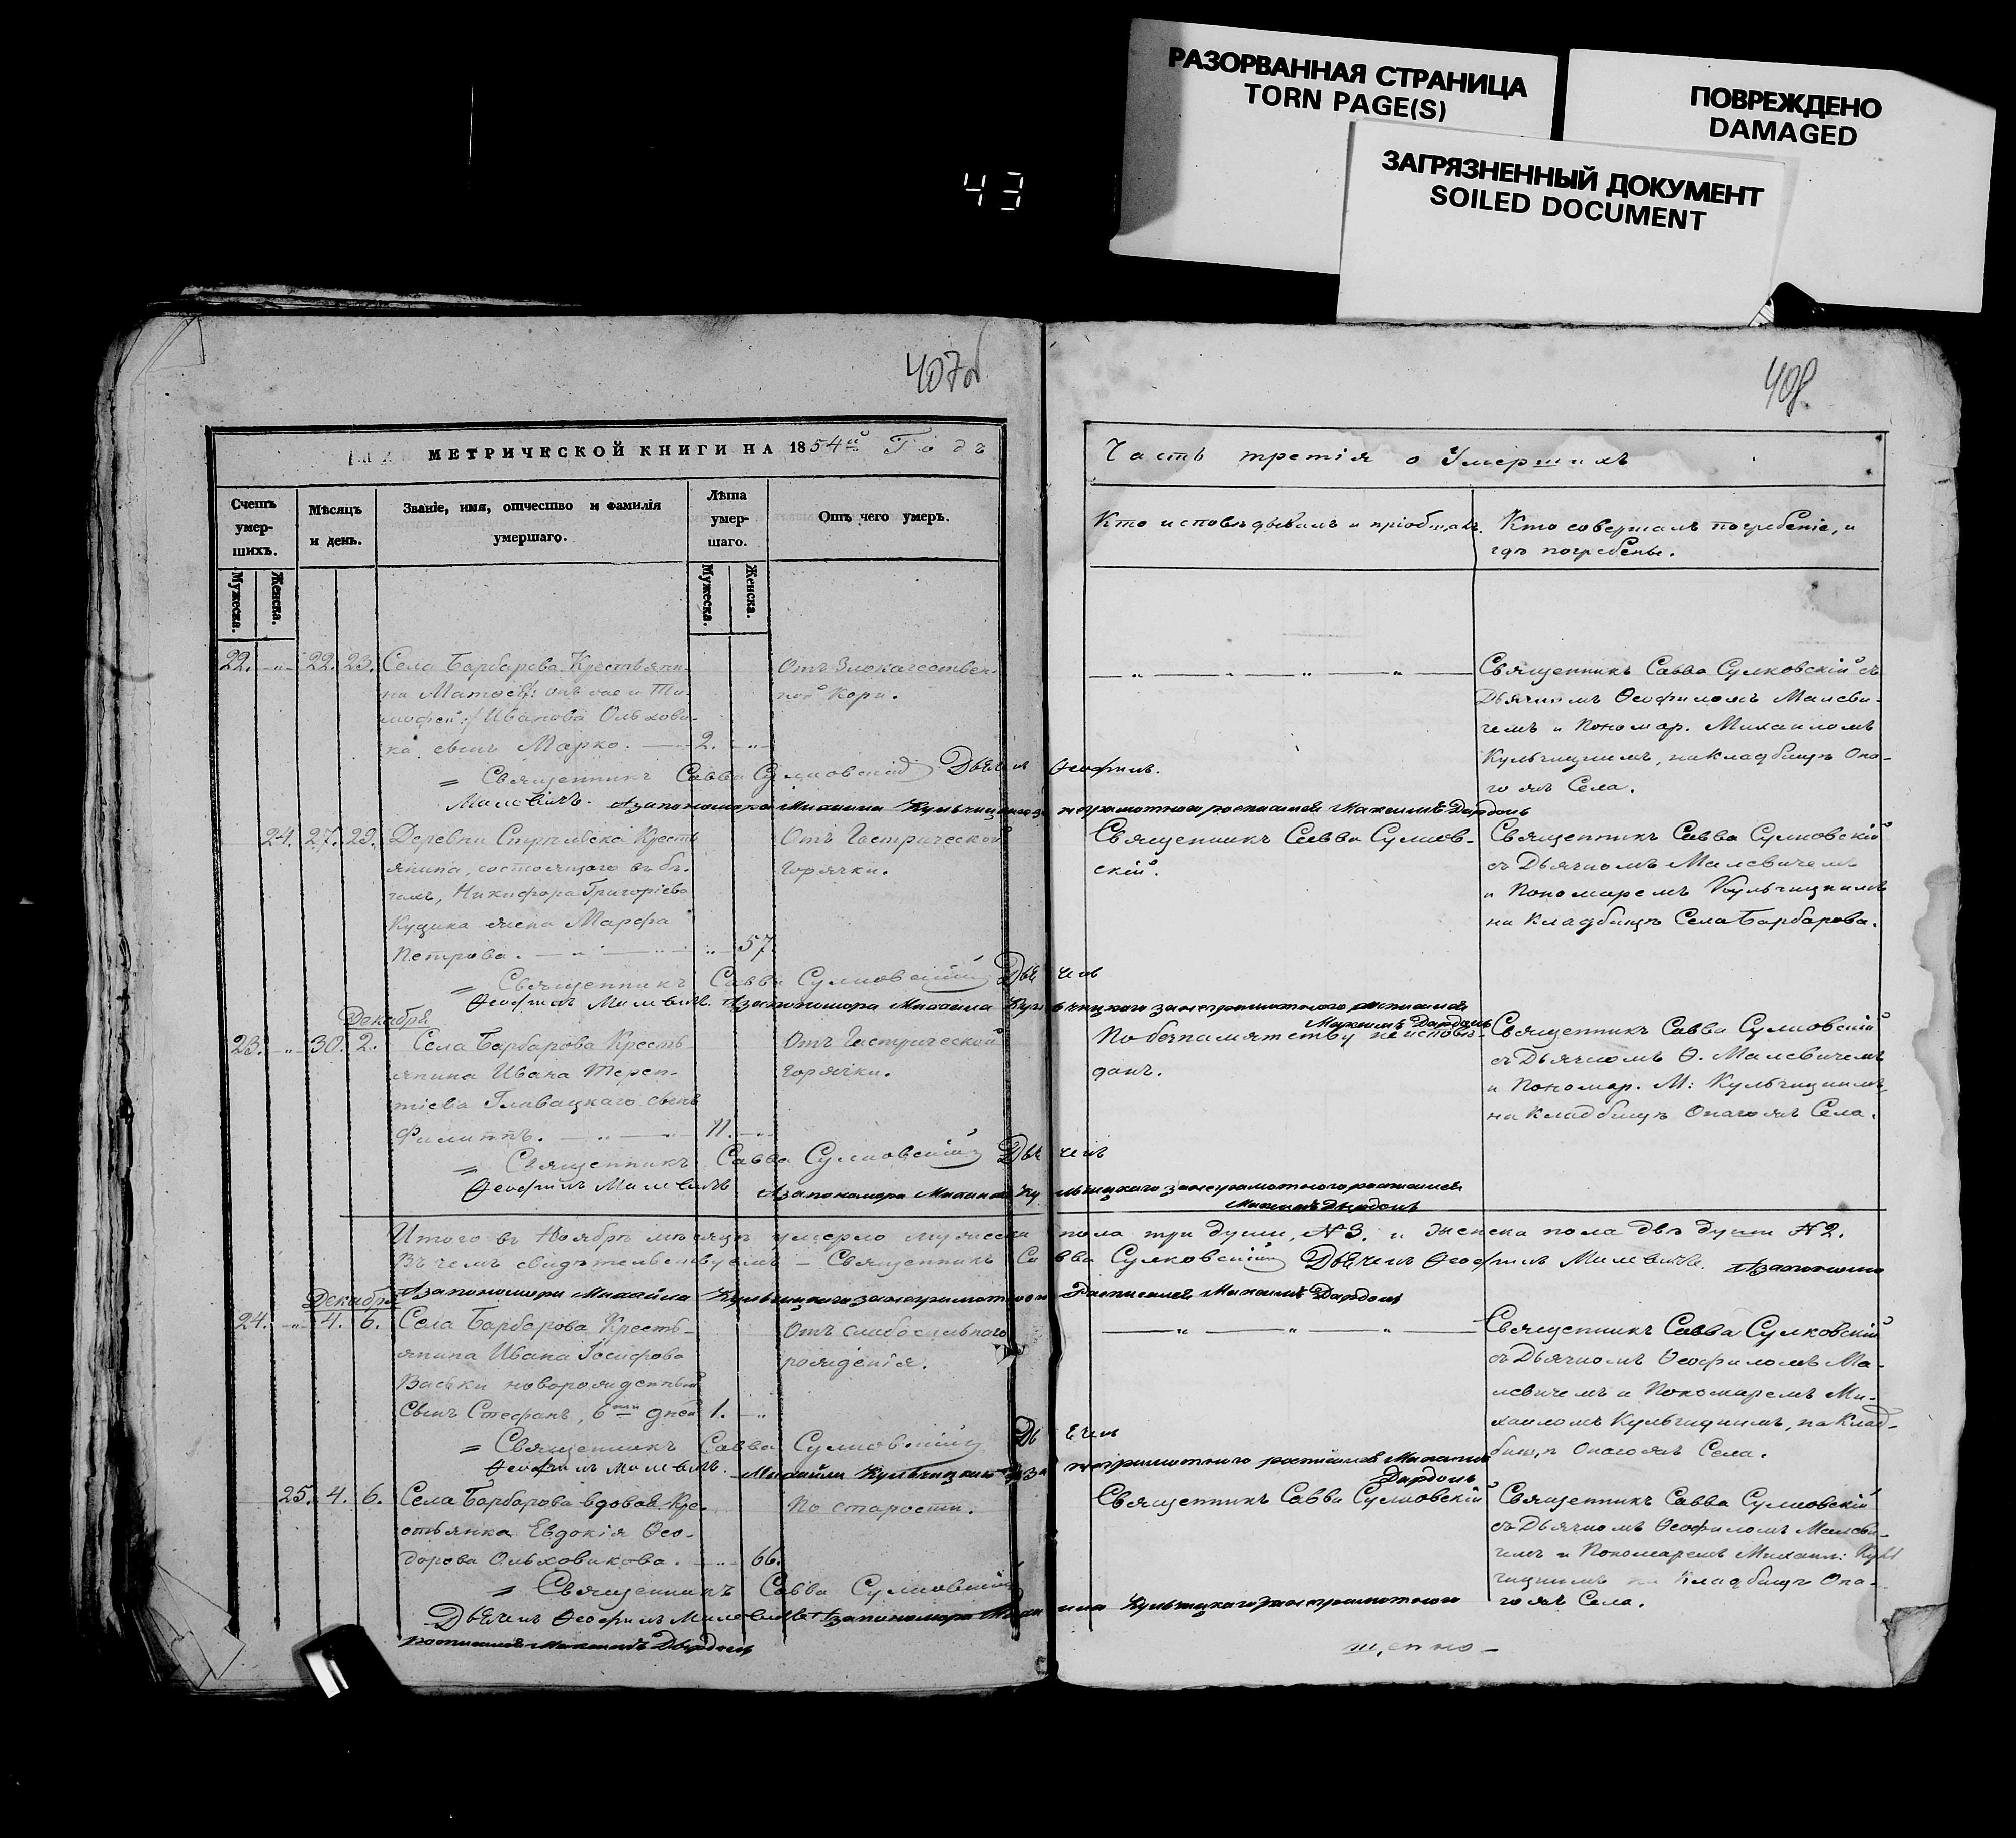 РАЗОРВАННАЯ СТРАНИЦА
TORN PAGE(S)
ПОВРЕЖДЕНО
DAMAGED
ЗАГРЯЗНЕННЫЙ ДОКУМЕНТ
SOILED DOCUMENT
43
407об
408.
МЕТРИЧЕСКОЙ КНИГИ НА 1854й Годъ
Счетъ
умер-
шихъ.
Мужеска.
Женска.
Мѣсяцъ
и день.
Званіе, имя, отчество и фамилія
умершаго.
Лѣта
умер-
шаго.
Мужеска.
Женска.
Отъ чего умеръ.
Часть третія о Умершихъ
Кто исповѣдывалъ и пріобщалъ.
Кто совершалъ погребеніе, и
гдѣ погребены.
22. 22. 23. Села Барбарова Крестьяни-
на Матѳей: онъ же и Ти-
мофей:/ Иванова Ольхови-
ка сынъ Марко. 2.
Отъ Злокачествен-
ной Кори.
Священникъ Савва Сулковскій съ
Дьячкомъ Ѳеофиломъ Малеви-
чемъ и Пономар. Михаиломъ
Кульчицкимъ, на кладбищѣ Она-
го жъ Села.
Священникъ Савва Сулковскій Дьячекъ Ѳеофилъ
Малевичъ. А за пономаря Михаила Кульчицкаго неграмотного росписался Максимъ Дардонь
24. 27. 29. Деревни Кресть
янина, состоящаго въ бѣ-
гахъ, Никифора Григоріева
Куцика жена Марфа
Петрова. 57.
Отъ Гастрической
Горячки.
Священникъ Савва Сулков-
скій.
Священникъ Савва Сулковскій
съ Дьячкомъ Малевичемъ
и Пономаремъ Кульчицкимъ
на Кладбищѣ Села Барбарова.
Священникъ Савва Сулковскій Дьячекъ
Ѳеофилъ Малевичъ. А за пономаря Михаила Кульчицкаго за неграмотного росписался
Максимъ Дардонь
Декабря
23. 30. 2. Села Барбарова Кресть
янина Ивана Терен-
тіева Главацкаго сынъ
Филиппъ. 11.
Отъ Гастрической
горячки.
По безпамятству не исповѣ-
данъ.
Священникъ Савва Сулковскій
съ Дьячкомъ Ѳ. Малевичемъ
и Пономар. М: Кульчицкимъ,
на Кладбищѣ Онаго жъ Села.
Священникъ Савва Сулковскій Дьячекъ
Ѳеофилъ Малевичъ А за пономаря Михаила Кульчицкаго за неграмотного росписался
Максимъ Дардонь
Итого въ Ноябрѣ мѣсяцѣ умерло мужеска пола три души, № 3. и женска пола двѣ души № 2.
Въ чемъ свидѣтельствуемъ – Священникъ Савва Сулковскій Дьячекъ Ѳеофилъ Малевичъ.
А за пономаря Михайла Кульчицкаго за неграмотного Росписался Максимъ Дардонь
Декабря
24. 4. 6. Села Барбарова Кресть-
янина Ивана Іосифова
Васьки новорожденный
Сынъ Стефанъ, 6ти дней 1.
Отъ слабосильнаго
рожденія.
Священникъ Савва Сулковскій
съ Дьячкомъ Ѳеофиломъ Ма-
левичемъ и Пономаремъ Ми-
хаиломъ Кульчицкимъ, на Клад-
бищѣ Онаго жъ Села.
Священникъ Савва Сулковскій Дьячекъ
Ѳеофилъ Малевичъ. Михайла Кульчицкаго за неграмотного росписался Максимъ
Дардонь
25. 4. 6. Села Барбарова вдовая Кре-
стьянка Евдокія Ѳео-
дорова Ольховикова. 66.
По старости.
Священникъ Савва Сулковскій
Священникъ Савва Сулковскій
съ Дьячкомъ Ѳеофиломъ Малеви-
чемъ и Пономаремъ Михаил: Куль
чицкимъ на Кладбищѣ Она-
го жъ Села.
Священникъ Савва Сулковскій
Дьячекъ Ѳеофилъ Малевичъ А за пономаря Михаила Кульчицкаго за неграмотного
росписался Максимъ Дардонь